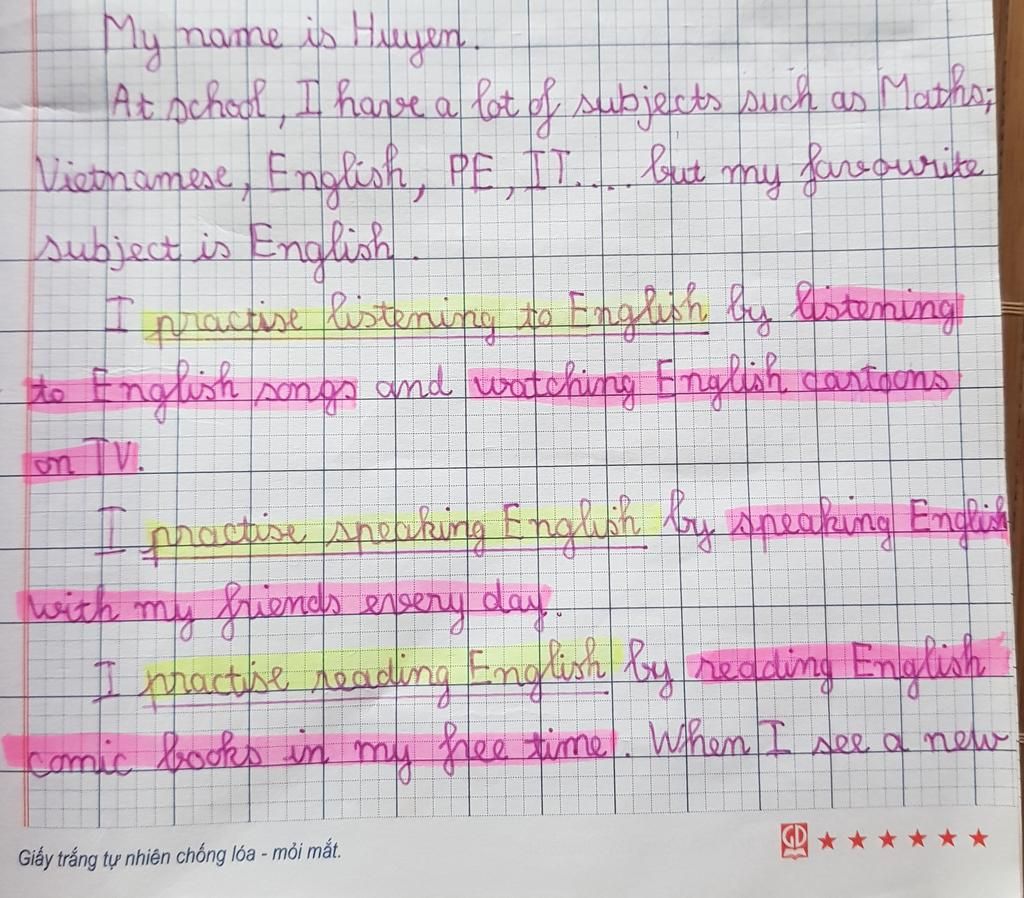 My name is Huyen.
At school, I have a lot of subjects such as Maths,
Vietnamese, English, PE, IT.... but my favourite
subject is English.
I practise listening to English by listening
to English songs and watching English cartoons
on TV.
I practise speaking English by speaking English
with my friends every day.
I practise reading English by reading English
comic books in my free time. When I see a new
GD
Giấy trắng tự nhiên chống lóa - mỏi mắt.